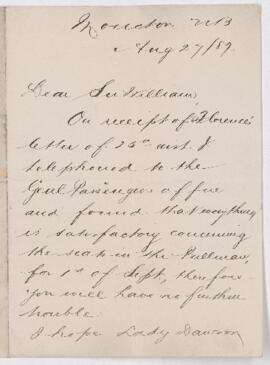 Moncton NB
Aug 27/89.
Dear Sir William,
On receipt of Florence's
letter of 25th inst. I
telephoned to the
Genl Passenger office
and found that everything
is satisfactory concerning
the seats in the Pullman,
for 1st of Sept, therefore
you will have no further
trouble.
I hope Lady Dawson